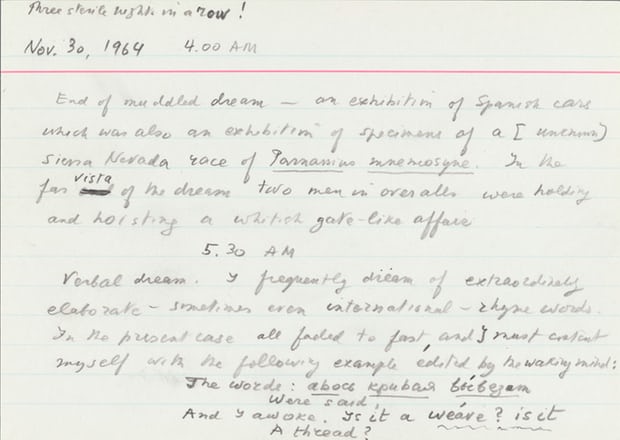 Three sterile nights in a row!
Nov. 30, 1964 4.00 AM
End of muddled dream — an exhibition of Spanish cars
which was also an exhibition of specimens of a [unknown]
Sierra Nevada race of Parnassius mnemosyne. In the
far vista of the dream two men in overalls were holding
and hoisting a whitish gate-like affair
5.30 AM
Verbal dream. I frequently dream of extraordinarily
elaborate — sometimes even international — rhyme words.
In the present case all faded to fast, and I must content
myself with the following example edited by the waking mind:
The words: авось кривая вывезет
Were said,
And I awoke. Is it a weave? is it
A thread?